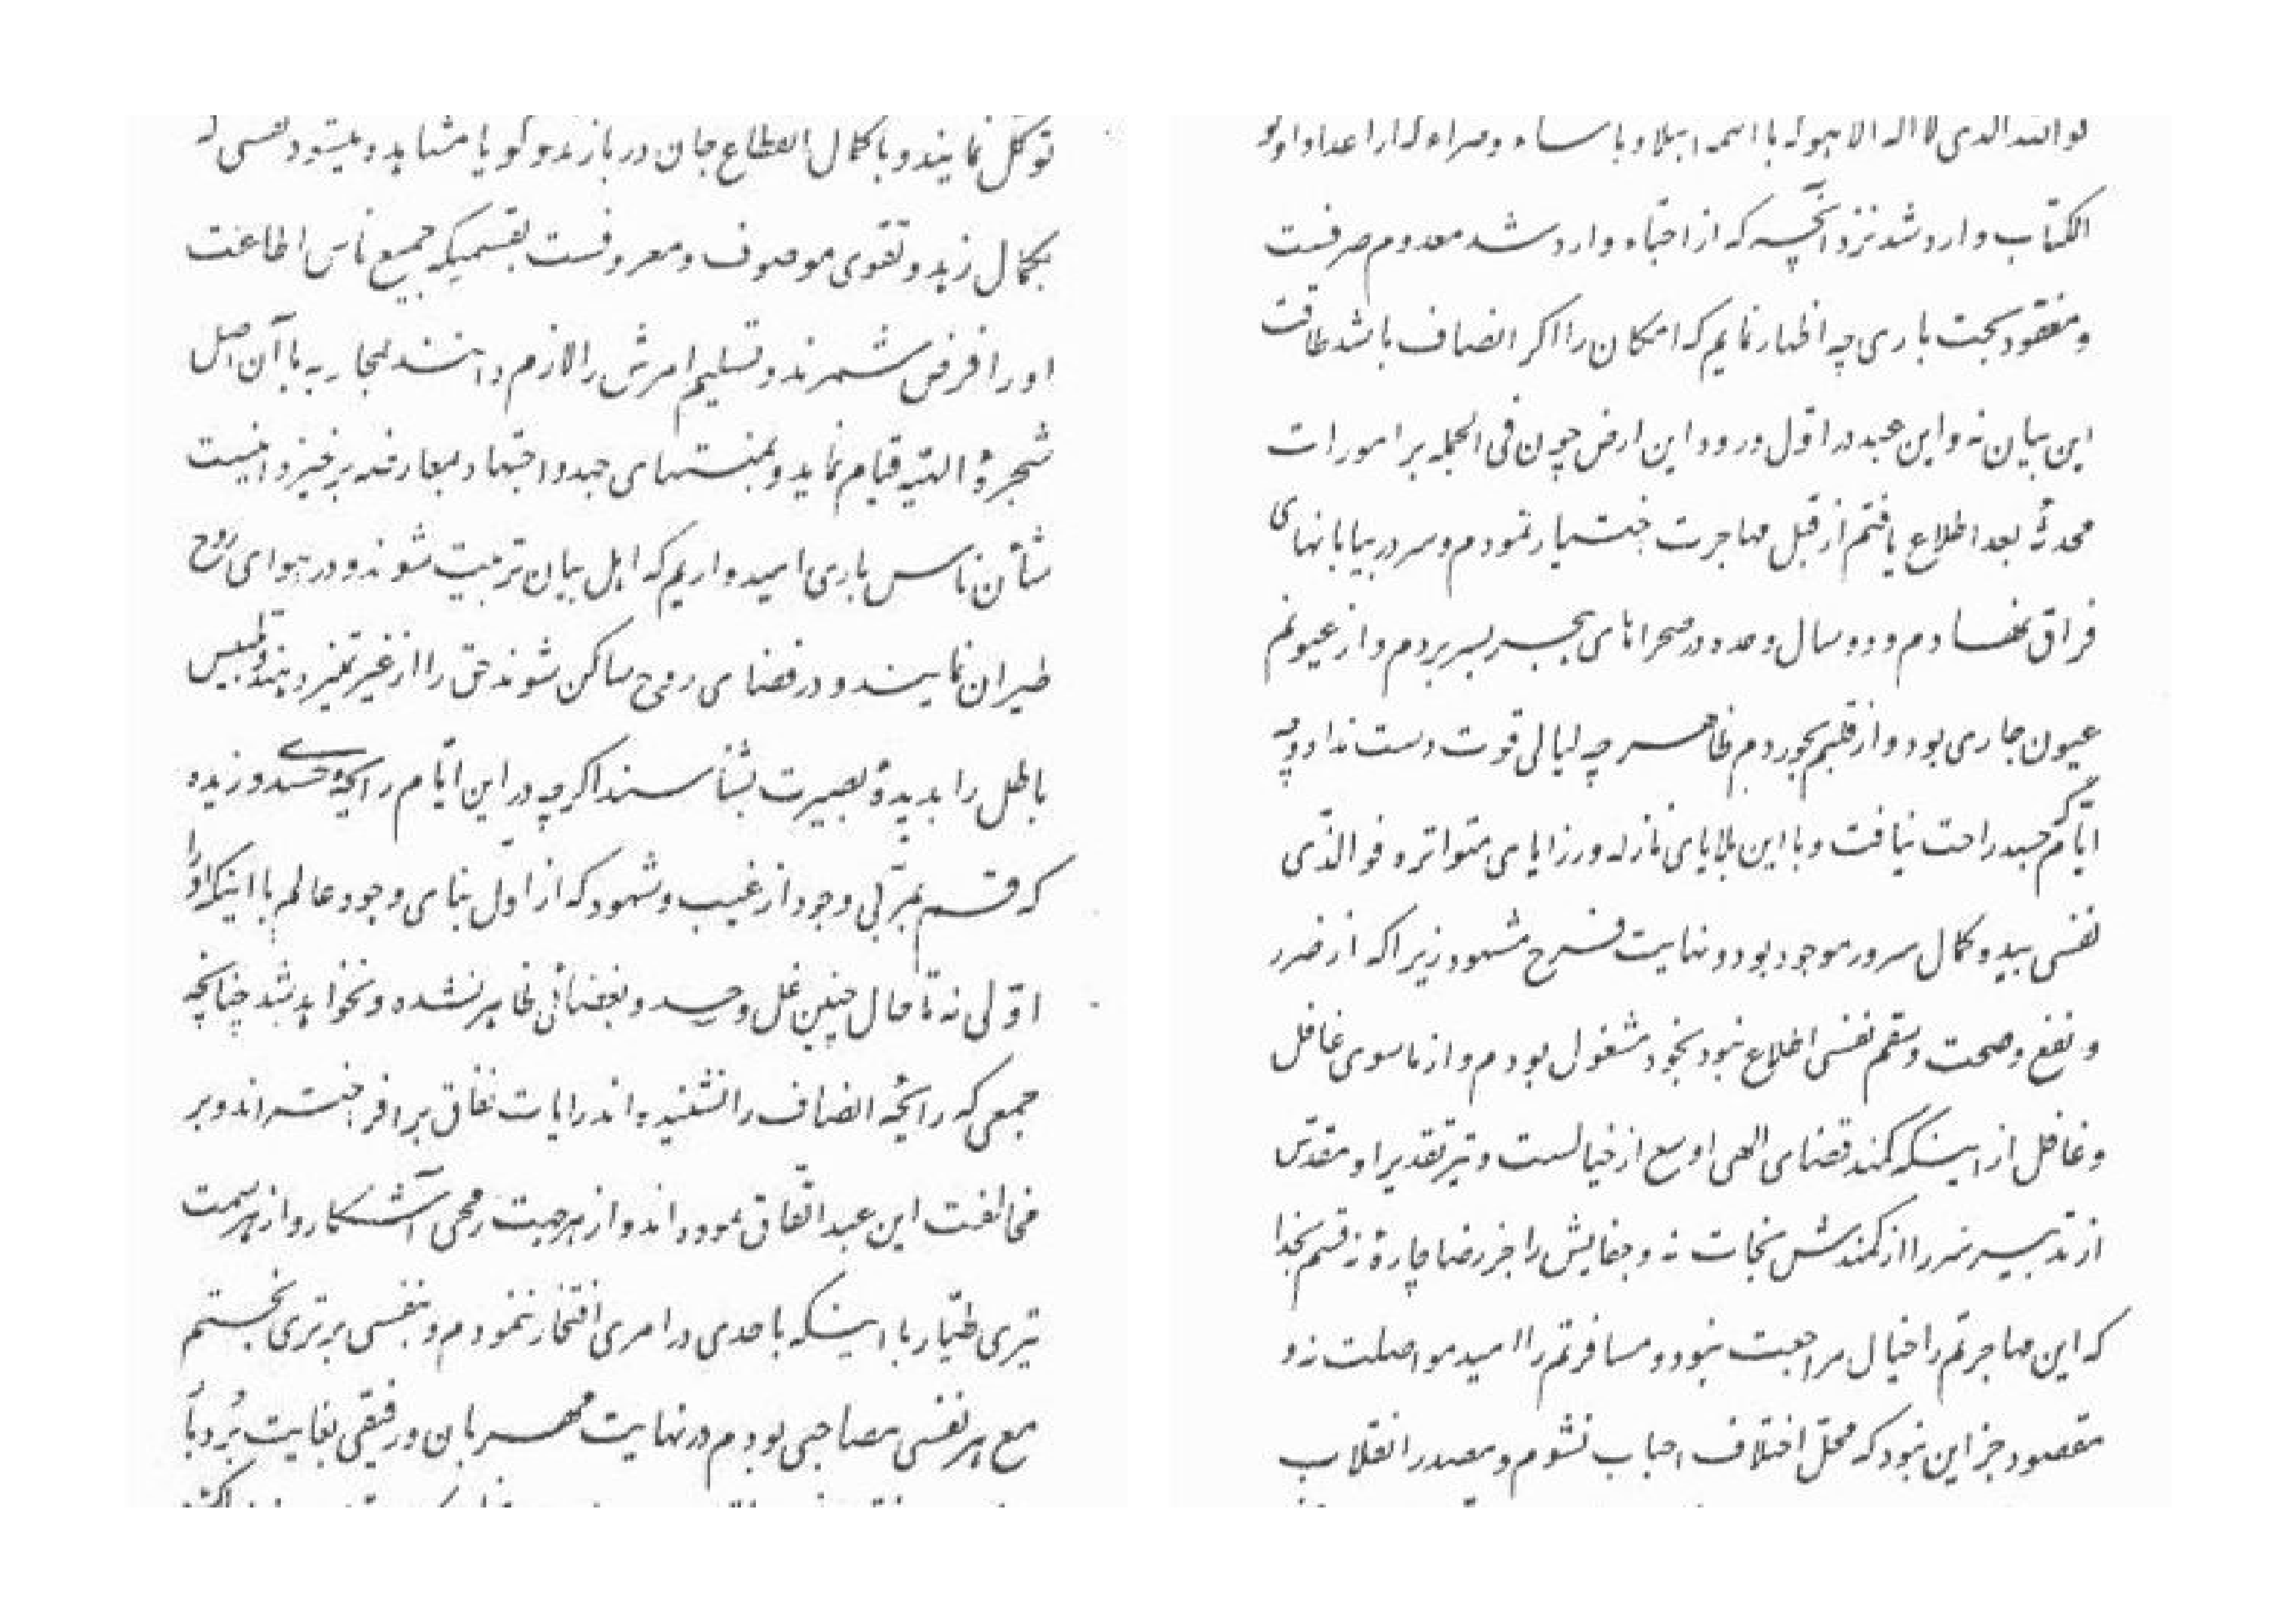 توکل نمایند و با کمال انقطاع جان در بازند و گویا مشاهده میشود نفسی که
بکمال زهد و تقوی موصوف و معروفست بقسمیکه جمیع ناس اطاعت
او را فرض شمرند و تسلیم امرش را لازم دانند بمحاربه با آن اصل
شجرهٔ الهیّه قیام نماید و بمنتهای جدّ و اجتهاد بمعارضه برخیزد اینست
شأن ناس باری امیدواریم که اهل بیان تربیت شوند و در هوای روح
طیران نمایند و در فضای روح ساکن شوند حق را از غیر تمیز دهند و تلبیس
باطل را بدیدهٔ بصیرت بشناسند اگرچه در این ایّام رایحهٔ حسدی وزیده
که قسم بمربّی وجود از غیب و شهود که از اول بنای وجود عالم با اینکه او را
اوّلی نه تا حال چنین غل و حسد و بغضائی ظاهر نشده و نخواهد شد چنانچه
جمعی که رایحهٔ انصاف را نشنیده‌اند رایات نفاق بر افراخته‌اند و بر
مخالفت این عبد اتّفاق نموده‌اند و از هر جهت رمحی آشکار و از هر سمت
تیری طیّار با اینکه باحدی در امری افتخار ننمودم و بنفسی برتری نجستم
مع هر نفسی مصاحبی بودم در نهایت مهربان و رفیقی بغایت بردبا
فوالله الذی لا اله الا هو که با آنهمه ابتلا و باساء و ضراء که از اعدا و اولو
الکتاب وارد شد نزد آنچه که از احبّاء وارد شد معدوم صرفست
و مفقود بحت باری چه اظهار نمایم که امکان را اگر انصاف باشد طاقت
این بیان نه و این عبد در اوّل ورود این ارض چون فی الجمله بر امورات
محدثهٔ بعد اطلاع یافتم از قبل مهاجرت اختیار نمودم و سر در بیابانهای
فراق نهادم و دو سال وحده در صحراهای هجر بسر بردم و از عیونم
عیون جاری بود و از قلبم بحور دم ظاهر چه لیالی که قوت دست نداد و چه
ایّام که جسد راحت نیافت و با این بلایای نازله و رزایای متواتره فوالّذی
نفسی بیده کمال سرور موجود بود و نهایت فرح مشهود زیرا که از ضرر
و نفع و صحت و سقم نفسی اطلاع نبود بخود مشغول بودم و از ماسوی غافل
و غافل از اینکه کمند قضای الهی اوسع از خیالست و تیر تقدیر او مقدّس
از تدبیر سر را از کمندش نجات نه و قضایش را جز رضا چاره نه قسم بخدا
که این مهاجرتم را خیال مراجعت نبود و مسافرتم را امید مواصلت نه و
مقصود جز این نبود که محلّ اختلاف احباب نشوم و مصدر انقلاب